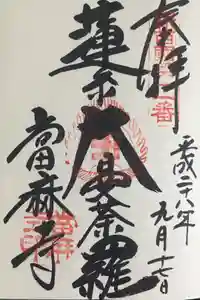 奉拝
平成二十八年
九月十七日
蓮糸大曼荼羅
當麻寺